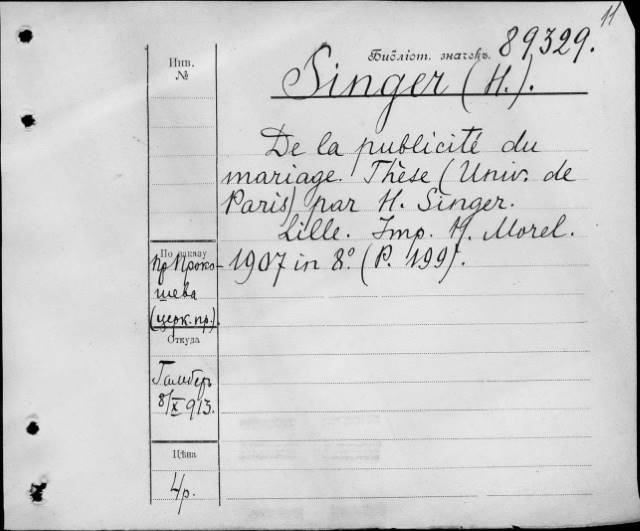 11
Библіот. значекъ. 89329.
Инв.
№
Singer (H.).
De la publicité du
mariage. Thèse (Univ. de
Paris) par H. Singer.
Lille. Imp. H. Morel.
1907 in 8º. (P. 199).
По заказу
пр. Проко-
шева
(церк. пр.).
Откуда
Гамберъ
8/X 913.
Цѣна
4р.